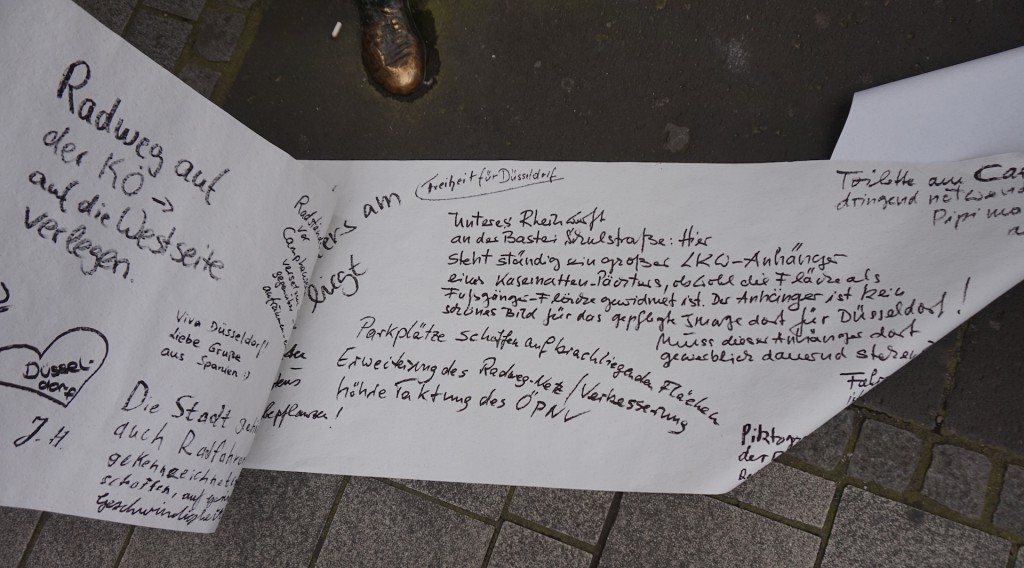 Radweg auf
der KÖ →
auf die Westseite
verlegen.
Viva Düsseldorf!
Liebe Grüße
aus Spanien :)
Düssel-
dorf
J. H
Die Stadt
auch Radfahrer
gekennzeichnet
schaffen, auf
Geschwindigkeit
vor
am
bepflanzen!
Freiheit für Düsseldorf
Unteres Rheinwerft
an der Bastei Schulstraße: Hier
steht ständig ein großer LKW-Anhänger
eines Kasematten-Pächters, obwohl die Fläche als
Fußgänger-Fläche gewidmet ist. Der Anhänger ist kein
schönes Bild für das gepflegte Image dort für Düsseldorf!
Muss dieser Anhänger dort
gewerblich dauernd stehen
Parkplätze schaffen auf brachliegenden Flächen
Erweiterung des Radweg-Netz / Verbesserung
höhre Taktung des ÖPNV
Toilette am
dringend
Pipi
der